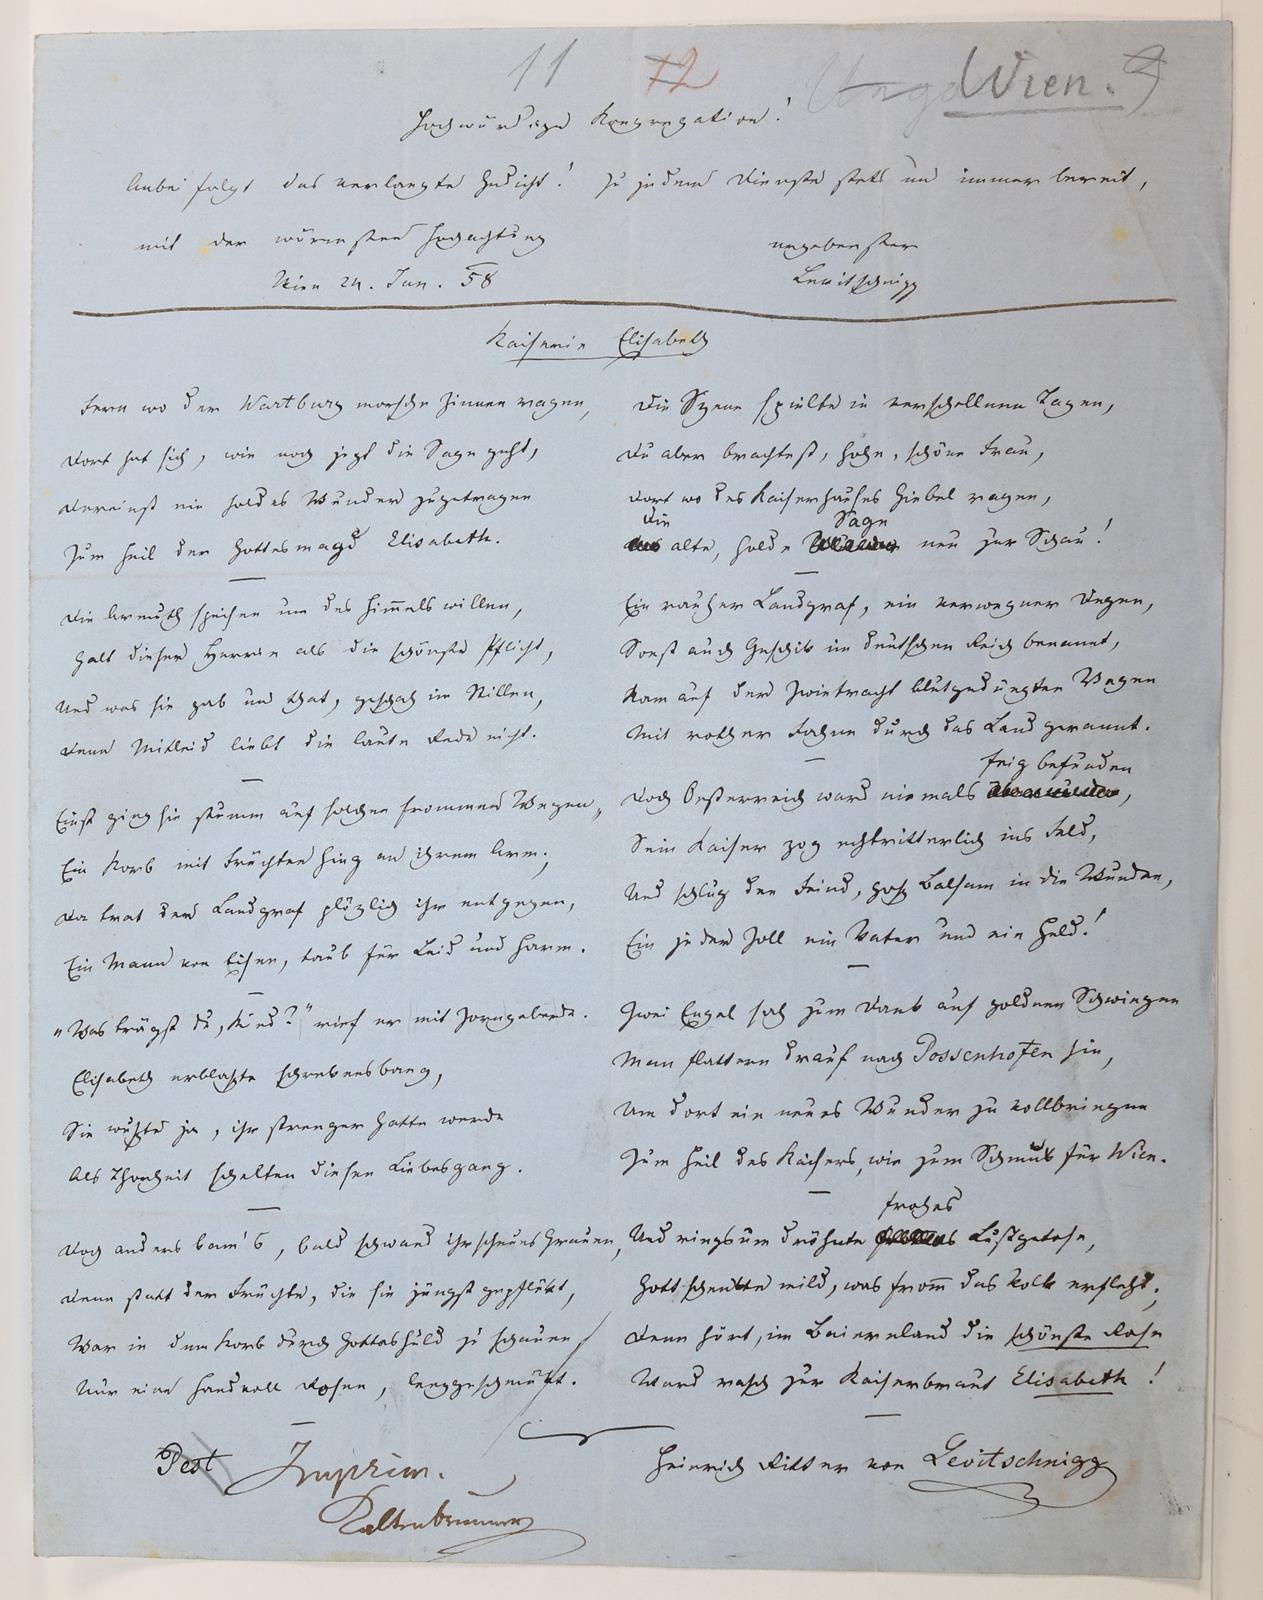 11 12 Wien.
Hochwürdige Kongregation!
Anbei folgt das verlangte Gedicht! Zu jedem Dienste stets und immer bereit,
mit der wärmsten Hochachtung
ergebenster
Wien 24. Jan. 58
Levitschnigg
Kaiserin Elisabeth
Fern wo der Wartburg morsche Zinnen ragen,
Dort hat sich, wie noch jetzt die Sage geht,
Dereinst ein holdes Wunder zugetragen
Zum Heil der Gottesmagd Elisabeth.
Die Armuth speisen um des Himmels willen,
Galt dieser Herrin als die schönste Pflicht,
Und was sie gab und that, geschah im Stillen,
Denn Mitleid liebt die laute Rede nicht.
Einst ging sie stumm auf solchen frommen Wegen,
Ein Korb mit Früchten hing an ihrem Arm;
Da trat der Landgraf plözlich ihr entgegen,
Ein Mann von Eisen, taub für Leid und Harm.
"Was trägst du, Kind?" rief er mit Zorngeberde.
Elisabeth erblaßte schrekensbang,
Sie wußte ja, ihr strenger Gatte werde
Als Thorheit schelten diesen Liebesgang.
Doch anders kam's, bald schwand ihr scheues Grauen,
Denn statt der Früchte, die sie jüngst gepflükt,
War in dem Korb durch Gotteshuld zu schauen
Nur eine Handvoll Rosen, lenzgeschmükt.
Die Szene spielte in verschollenen Tagen,
Du aber brachtest, hohe, schöne Frau,
Dort wo des Kaiserhauses Giebel ragen,
Die Sage
alte, holde neu zur Schau!
Ein rauher Landgraf, ein verwegner Degen,
Sonst auch Geschik im deutschen Reich benannt,
Kam auf der Zwietracht blutgedüngten Wegen
Mit rother Fahne durch das Land gerannt.
feig befunden
Doch Oesterreich ward niemals,
Sein Kaiser zog echtritterlich ins Feld,
Und schlug den Feind, goß Balsam in die Wunden,
Ein jeder Zoll ein Vater und ein Held!
Zwei Engel sah zum Dank auf goldnen Schwingen
Man flattern drauf nach Possenhofen hin,
Um dort ein neues Wunder zu vollbringen
Zum Heil des Kaisers, wie zum Schmuk für Wien.
frohes
Und ringsum dröhnte Lustgetose,
Gott schenkte mild, was fromm das Volk erfleht;
Denn hört, im Baiernland die schönste Rose
Ward rasch zur Kaiserbraut Elisabeth!
Heinrich Ritter von Levitschnigg
Pest
Kaltenbrunner